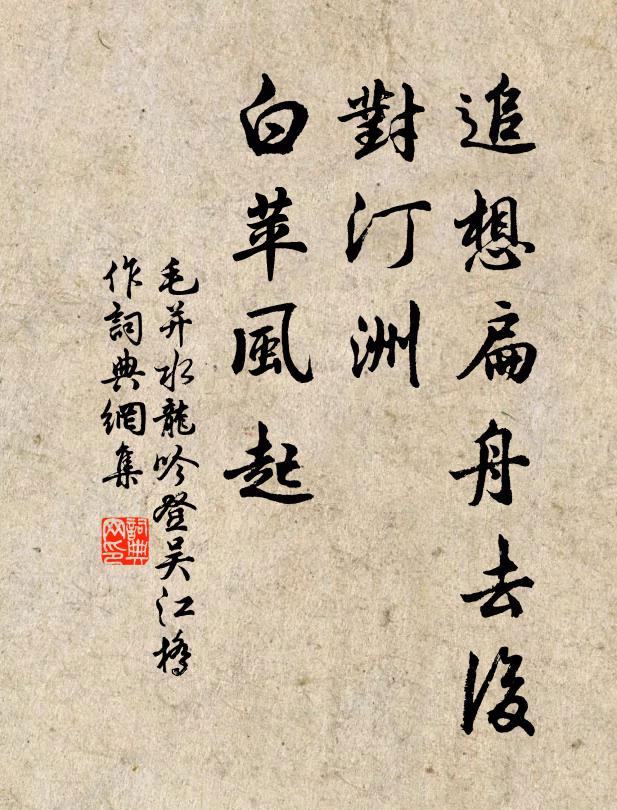 追想扁舟去後
對汀洲
白苹風起
毛幵水龍吟登吳江橋
作詞典網集
詞典
网印